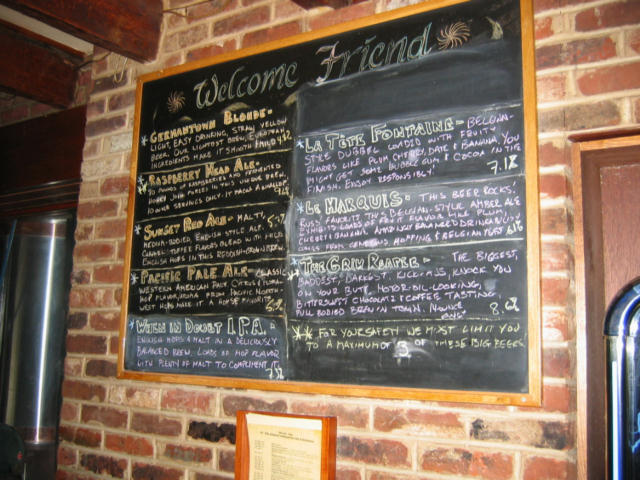 Welcome Friend
GERMANTOWN BLONDE-
LIGHT, EASY DRINKING, STRAW YELLOW
BEER. OUR LIGHTEST BREW. EUROPEAN
INGREDIENTS MAKE IT SMOOTH
RASPBERRY MEAD ALE-
POUNDS OF RASPBERRIES AND FERMENTED
HONEY IN THIS UNIQUE BREW.
10 OUNCE SERVINGS ONLY. IT PACKS A
SUNSET RED ALE- MALTY,
MEDIUM-BODIED, ENGLISH STYLE ALE.
CARAMEL TOFFEE FLAVORS BLEND WITH
ENGLISH HOPS IN THIS REDDISH
PACIFIC PALE ALE- CLASSIC
WESTERN AMERICAN PALE. CITRUS & FLORAL
HOP FLAVOR/AROMA FROM PACIFIC NORTH
WEST HOPS MAKE IT A HOUSE FAVORITE
WHEN IN DOUBT I.P.A.-
ENGLISH HOPS & MALT IN A DELICIOUSLY
BALANCED BREW. LOADS OF HOP FLAVOR
WITH PLENTY OF MALT TO COMPLIMENT IT
*LA TÊTE FONTAINE- BELGIAN-
STYLE DUBBEL LOADED WITH FRUITY
FLAVORS LIKE PLUM CHERRY, DATE & BANANA. YOU
MIGHT GET SOME BUBBLE GUM & COCOA IN THE
FINISH. ENJOY RESPONSIBLY 7.1%
*LE MARQUIS- THIS BEER ROCKS!
FAVORITE THIS BELGIAN-STYLE AMBER ALE
EXHIBITS LOADS OF FRUIT FLAVOR LIKE PLUM,
CHERRY & BANANA. AMAZINGLY BALANCED DRINKABILITY
COMES FROM GENEROUS HOPPING & BELGIAN YEAST
*THE GRIM REAPER- THE BIGGEST,
BADDEST, DARKEST, KICK-ASS, KNOCK YOU
ON YOUR BUTT, MOTOR-OIL-LOOKING,
BITTERSWEET CHOCOLATE & COFFEE TASTING,
FULL BODIED BREW IN TOWN. 8.6%
** FOR YOUR SAFETY WE MUST LIMIT YOU
TO A MAXIMUM OF 3 OF THESE BIG BEERS.